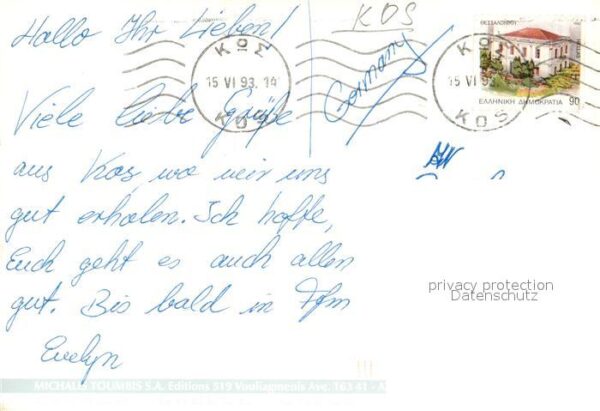 Hallo Ihr Lieben!
KOS
ΘΕΣΣΑΛΟΝΙΚΗ
ΚΩΣ
15 VI 93. 14
KOS
Germany
ΚΩΣ
15 VI 93
KOS
ΕΛΛΗΝΙΚΗ ΔΗΜΟΚΡΑΤΙΑ 90
Viele liebe Grüße
aus Kos, wo wir uns
gut erholen. Ich hoffe,
Euch geht es auch allen
gut. Bis bald in Ffm
Evelyn
privacy protection
Datenschutz
MICHALIS TOUMBIS S.A. Editions 519 Vouliagmenis Ave. 163 41 - A